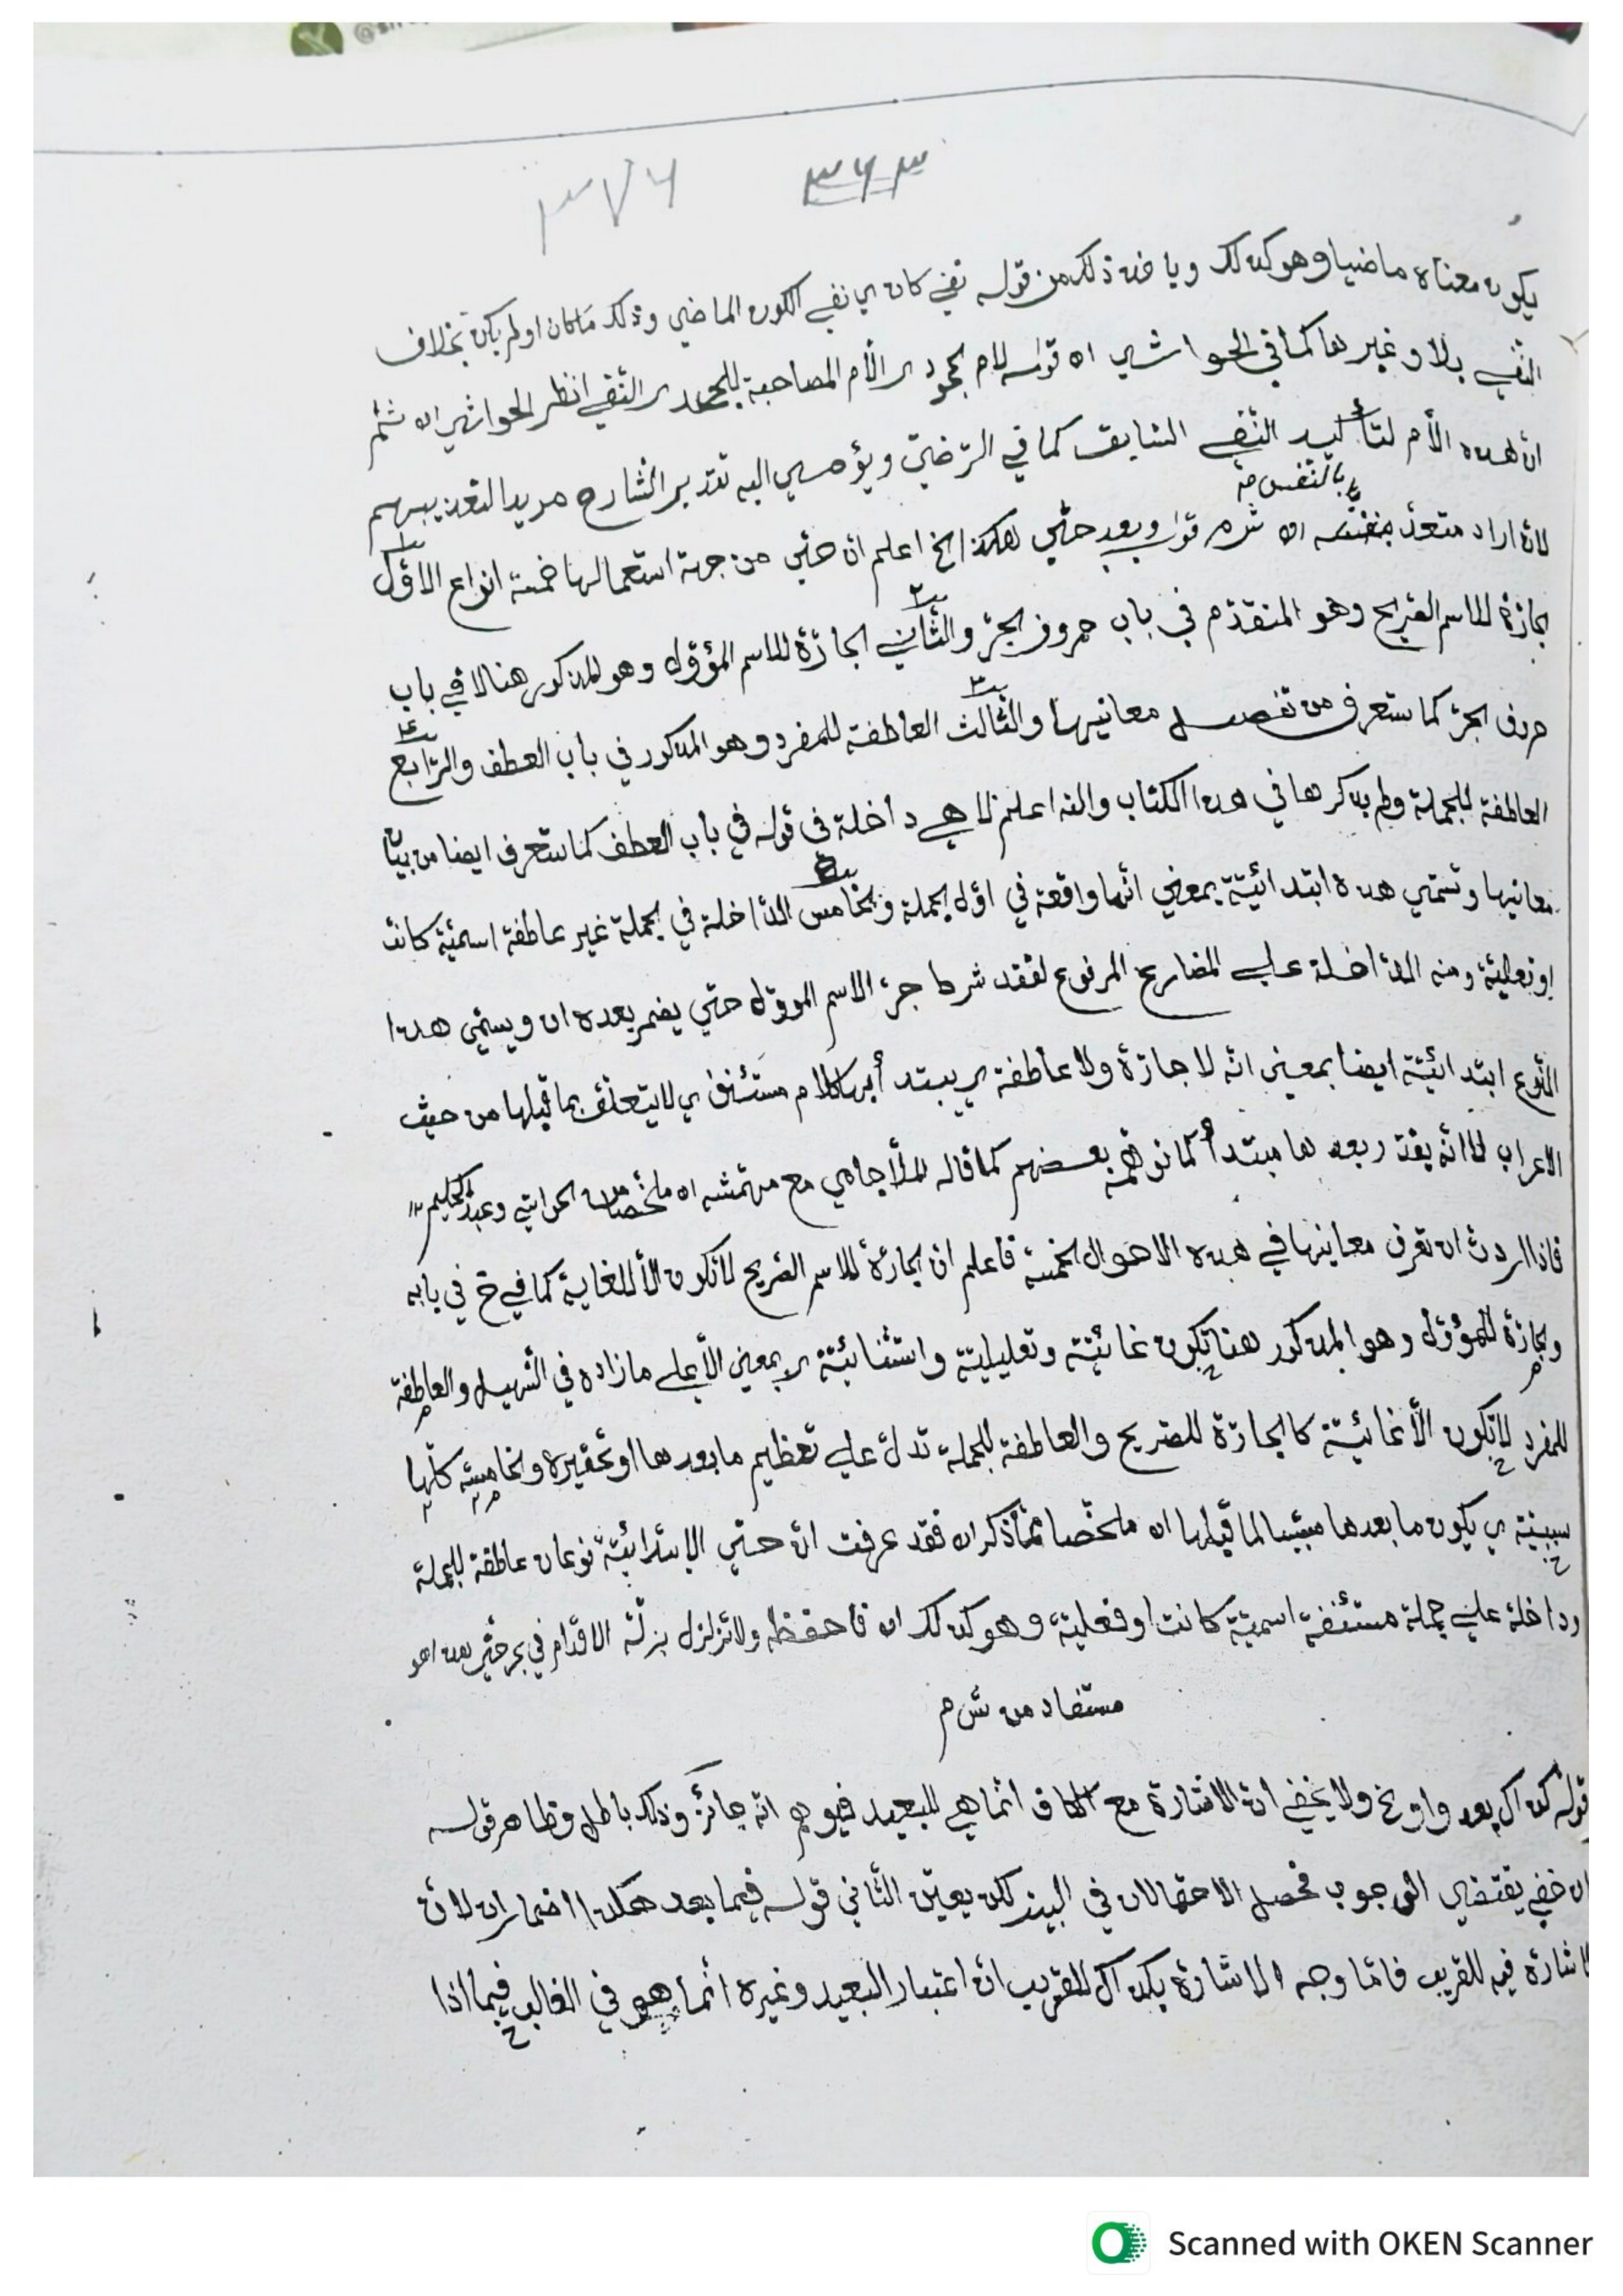 ٣٦٣ ٣٧٦
يكون معناه ماضيا وهو كذلك ويا خذ ذلك من قوله نفي كان ي نفي الكون الماضي وذلك ماكان اولم يكن بخلاف
النفي بلا وغيرها كما في الحواشي اه قوله لام جحود ي الأم المصاحبة للجحد ي النفي انظر الحواشي اه
ان هذه الأم لتأكيد النفي السابق كما في الرضي ويؤمي اليه تقدير الشارح مريدا لتعذيبهم
لان اراد متعد بنفسه اه قوله وبعد حتي هكذا الخ اعلم ان حتي من جهة استعمالها خمسة انواع الاول
بالنفس
الجارة للاسم الصريح وهو المتقدم في باب حروف الجر والثاني الجارة للاسم المؤول وهو المذكور هنا لا في باب
حروف الجر كما ستعرف من تفصيل معانيها والثالث العاطفة للمفرد وهو المذكور في باب العطف والرابع
العاطفة للجملة ولم يذكرها في هذا الكتاب والله اعلم لا هي داخلة في قوله في باب العطف كما ستعرف ايضا من بيان
معانيها وتسمي هذه ابتدائية بمعني انها واقعة في اول الجملة والخامس الداخلة في الجملة غير عاطفة اسمية كانت
او فعلية ومنه الداخلة علي المضارع المرفوع لفقد شرط جر الاسم المووّل حتي يضمر بعده ان ويسمي هذا
النوع ابتدائية ايضا بمعني انه لا جارة ولا عاطفة ي يبتدأ بها كلام مستئنف ي لا يتعلق بما قبلها من حيث
الاعراب لا انه يقدر بعدها مبتدأ كما توهمه بعضهم كما قاله الملا جامي مع مهمشه اه ملخصا من الحواشي وعبد الحكيم ١٢
فاذا اردت ان تعرف معانيها في هذه الاحوال الخمسة فاعلم ان الجارة للاسم الصريح لا تكون الا للغاية كما في ح في بابه
والجارة للمؤول وهو المذكور هنا تكون غائية وتعليلية واستثنائية ي بمعني الا علي ما زاده في التسهيل والعاطفة
للمفرد لا تكون الا غائية كالجارة للصريح والعاطفة للجملة تدل علي تعظيم ما بعدها او تحقيره والخامسة كلها
سببية ي يكون ما بعدها مسببا لما قبلها اه ملخصا مما ذكر اه فقد عرفت ان حتي الابتدائية نوعان عاطفة للجملة
وداخلة علي جملة مستئنفة اسمية كانت او فعلية وهو كذلك اه فاحفظه ولا تزلزل بزلة الاقدام في بحر حتي هذا هو
مستفاد من ش م
قوله كذاك بعد واو الخ ولا يخفي ان الاشارة مع الكاف انما هي للبعيد فيوهم انه جائز وذلك باطل وظاهر قوله
ان خفي يقتضي الوجوب فحصل الاحتمالان في البين لكن يعين الثاني قوله فيما بعد هكذا اضمار ان لان
الاشارة فيه للقريب فاما وجه الاشارة بكذاك للقريب ان اعتبار البعيد وغيره انما هو في الغالب فيما اذا
Scanned with OKEN Scanner